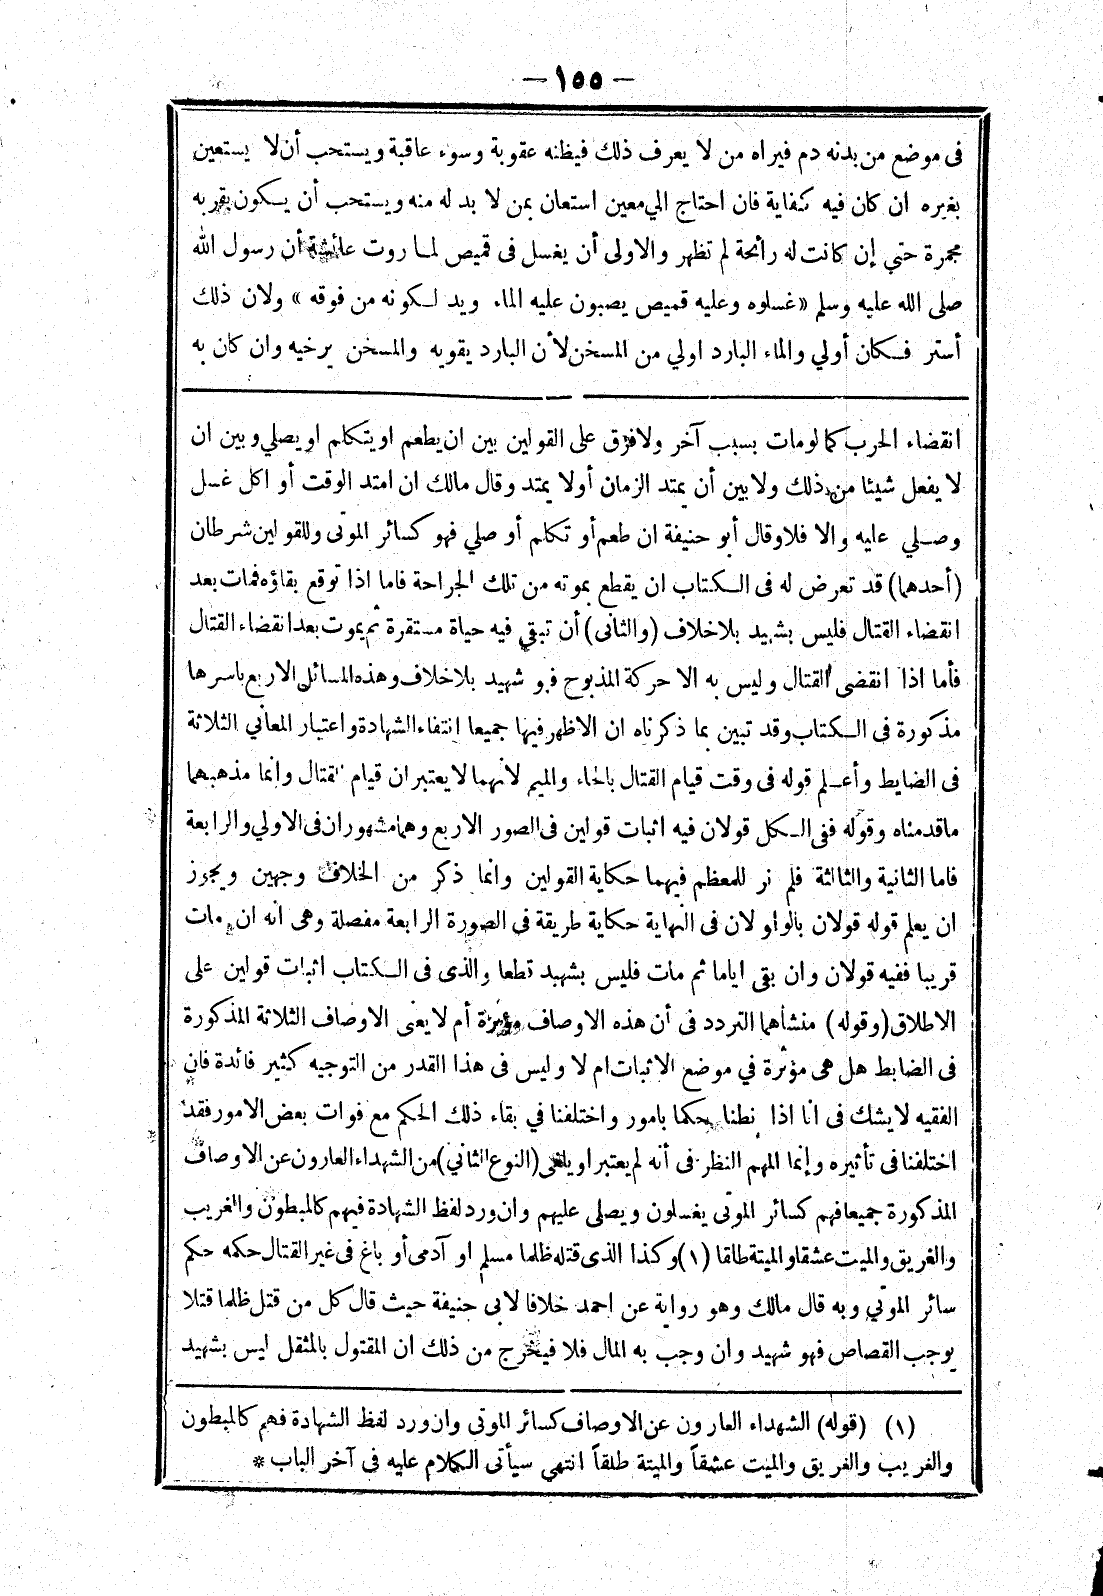 — ١٥٥ —
فى موضع من بدنه دم فيراه من لا يعرف ذلك فيظنه عقوبة وسوء عاقبة ويستحب أن لا يستعين
بغيره ان كان فيه كفاية فان احتاج الي معين استعان بمن لا بد له منه ويستحب أن يكون بقربه
مجمرة حتي إن كانت له رائحة لم تظهر والاولى أن يغسل فى قميص لما روت عائشة أن رسول الله
صلى الله عليه وسلم «غسلوه وعليه قميص يصبون عليه الماء ويد لكونه من فوقه» ولان ذلك
أستر فكان أولي والماء البارد اولي من المسخن لأن البارد يقويه والمسخن يرخيه وان كان به
انقضاء الحرب كما لومات بسبب آخر ولا فرق على القولين بين ان يطعم او يتكلم او يصلي وبين ان
لا يفعل شيئا من ذلك ولا بين أن يمتد الزمان أولا يمتد وقال مالك ان امتد الوقت أو اكل غسل
وصلي عليه والا فلا وقال أبو حنيفة ان طعم أو تكلم أو صلي فهو كسائر الموتى وللقولين شرطان
(أحدهما) قد تعرض له فى الكتاب ان يقطع بموته من تلك الجراحة فاما اذا توقع بقاؤه فمات بعد
انقضاء القتال فليس بشهيد بلاخلاف (والثانى) أن تبقي فيه حياة مستقرة ثم يموت بعد انقضاء القتال
فأما اذا انقضى القتال وليس به الا حركة المذبوح فهو شهيد بلاخلاف وهذه المسائل الاربع باسرها
مذكورة فى الكتاب وقد تبين بما ذكرناه ان الاظهر فيها جميعا انتفاء الشهادة واعتبار المعاني الثلاثة
فى الضابط وأعلم قوله فى وقت قيام القتال بالحاء والميم لانهما لا يعتبران قيام القتال وانما مذهبهما
ماقدمناه وقوله ففى الكل قولان فيه اثبات قولين فى الصور الاربع وهما مشهوران فى الاولي والرابعة
فاما الثانية والثالثة فلم نر للمعظم فيهما حكاية القولين وانما ذكر من الخلاف وجهين ويجوز
ان يعلم قوله قولان بالواو لان فى النهاية حكاية طريقة في الصورة الرابعة مفصلة وهى انه ان مات
قريبا ففيه قولان وان بقى اياما ثم مات فليس بشهيد قطعا والذى فى الكتاب اثبات قولين على
الاطلاق (وقوله) منشأهما التردد فى أن هذه الاوصاف مؤثرة أم لا يعنى الاوصاف الثلاثة المذكورة
فى الضابط هل هى مؤثرة في موضع الاثبات ام لا وليس فى هذا القدر من التوجيه كثير فائدة فان
الفقيه لا يشك فى انا اذا نطنا حكما بامور واختلفنا في بقاء ذلك الحكم مع فوات بعض الامور فقد
اختلفنا فى تأثيره وإنما المهم النظر فى أنه لم يعتبر او يلغى (النوع الثاني) من الشهداء العارون عن الاوصاف
المذكورة جميعا فهم كسائر الموتى يغسلون ويصلى عليهم وان ورد لفظ الشهادة فيهم كالمبطون والغريب
والغريق والميت عشقا والميتة طلقا (١) وكذا الذى قتله ظلما مسلم او آدمى أو باغ فى غير القتال حكمه حكم
سائر الموتي وبه قال مالك وهو رواية عن احمد خلافا لابى حنيفة حيث قال كل من قتل ظلما قتلا
يوجب القصاص فهو شهيد وان وجب به المال فلا فيخرج من ذلك ان المقتول بالمثقل ليس بشهيد
(١) (قوله) الشهداء العارون عن الاوصاف كسائر الموتى وان ورد لفظ الشهادة فهم كالمبطون
والغريب والغريق والميت عشقاً والميتة طلقاً انتهي سيأتى الكلام عليه فى آخر الباب *